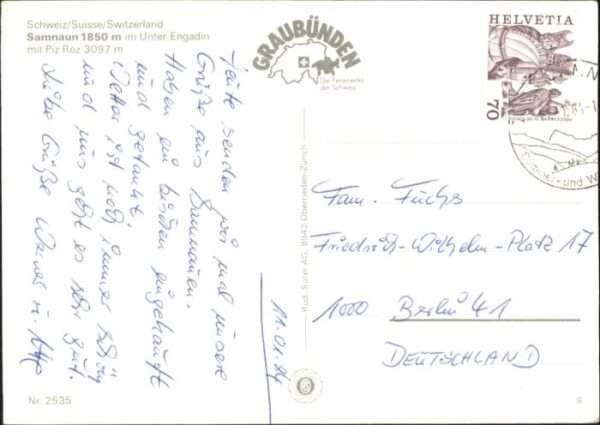 Schweiz/Suisse/Switzerland
Samnaun 1850 m im Unter Engadin
mit Piz Roz 3097 m
GRAUBÜNDEN
Die Ferienecke
der Schweiz
HELVETIA
70
Heute senden wir mal unsere
Grüße aus Samnaun.
Haben ein bißchen eingekauft
und getankt.
Wetter ist noch immer schön
und uns geht es sehr gut.
Liebe Grüße Werner u.
11.01.84
Fam. Fuchs
Friedrich-Wilhelm-Platz 17
1000 Berlin 41
DEUTSCHLAND
Rud. Suter AG, 8942 Oberrieden-Zürich
Nr. 2535
9